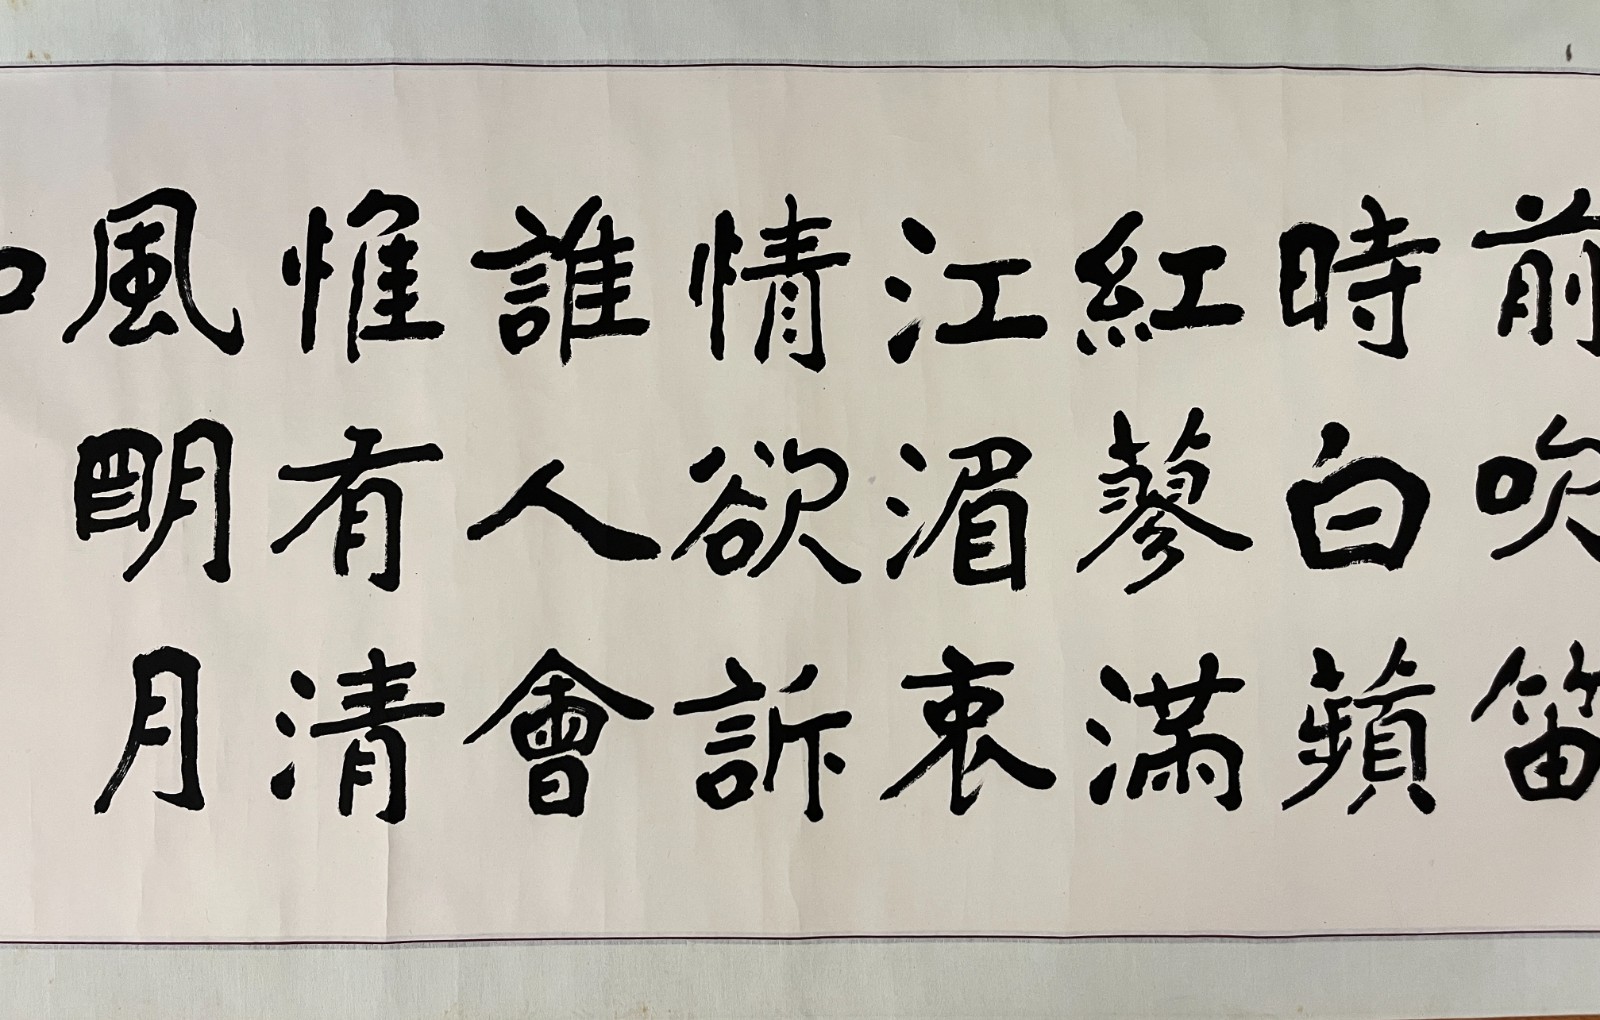 前吹笛
時白蘋
紅蓼滿
江湄衷
情欲訴
誰人會
惟有清
風朙月